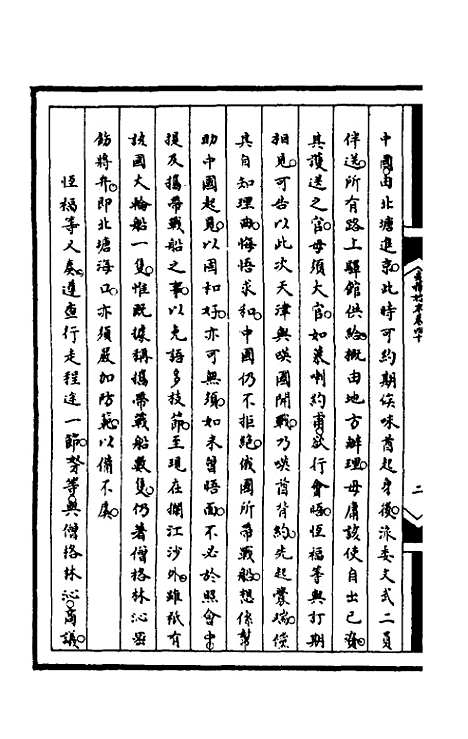 中國由北塘進京此時可約期俟咪酋起身後派委文武二員
伴送所有路上驛館供給概由地方辦理毋庸該使自出己資
其護送之官毋須大官如萊喇約甫欲行會晤恆福等與打期
相見可告以此次天津與𠸄國開戰乃𠸄酋背約先起釁端儻
其自知理曲悔悟求和中國仍不拒絶俄國所帶戰船想係幫
助中國起見以國和好亦可無須如未曾晤面不必於照會中
提及攜帶戰船之事以免語多枝節至現在攔江沙外雖祇有
該國大輪船一隻惟既據稱攜帶戰船數隻仍著僧格林沁密
飭將弁即北塘海口亦須嚴加防範以備不虞
恆福等又奏遵查行走程途一節奴才等與僧格林沁商議
二